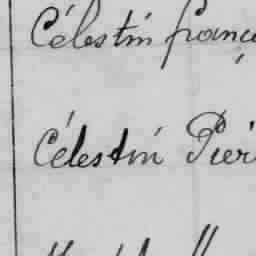 Célestin franç
Célestin Pier